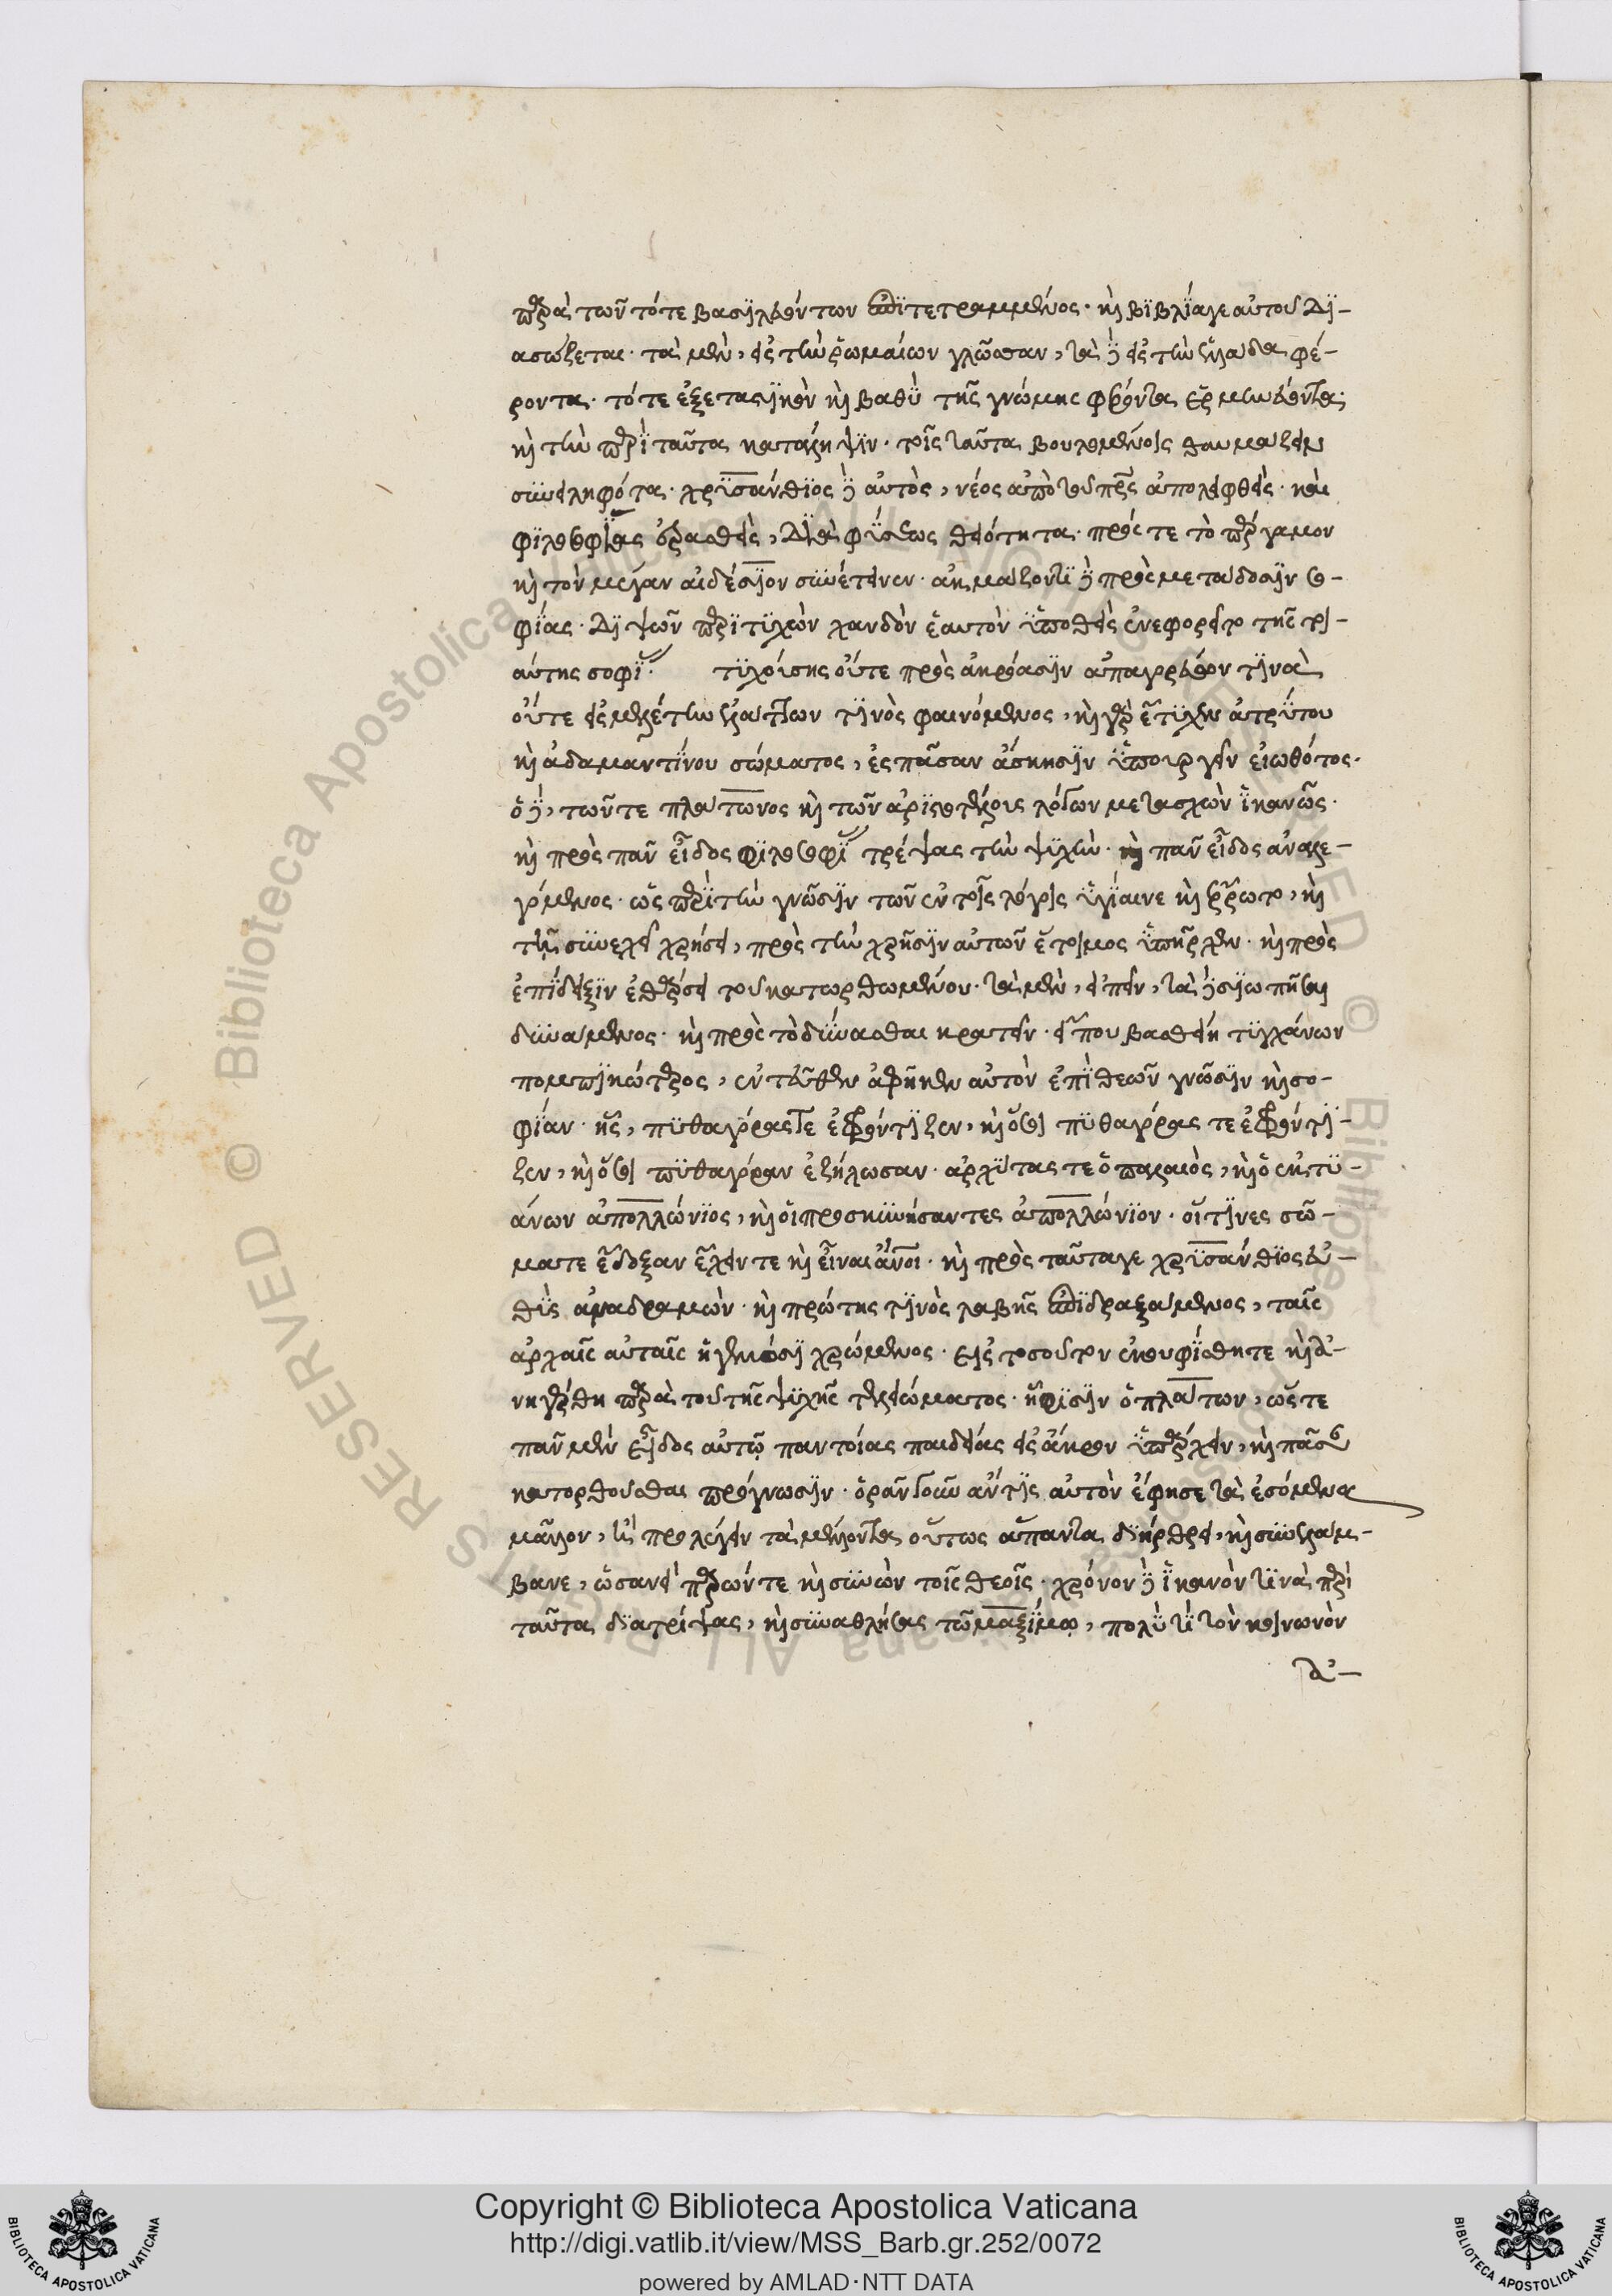 παρὰ τῶν τότε βασιλευόντων ἐπιτετραμμένος· καὶ βιβλία γε αὐτοῦ δι-
ασώζεται· τὰ μὲν, εἰς τὴν ῥωμαίων γλῶσσαν, τὰ δὲ εἰς τὴν ἑλλάδα φέ-
ροντα· τότε ἐξεταστικὸν καὶ βαθὺ τῆς γνώμης φρονοῦντα ἑρμηνεύοντα·
καὶ τὴν περὶ ταῦτα κατάληψιν· τοῖς ταῦτα βουλομένοις θαυμάζειν
συνειληφότα· χρυσάνθιος δὲ αὐτὸς, νέος ἀπὸ τοῦ πατρὸς ἀπολειφθεὶς· καὶ
φιλοσοφίας ἐρασθεὶς, διὰ φύσεως θειότητα· πρός τε τὸ πέργαμον
καὶ τὸν μέγαν αἰδέσιον συνέτεινεν· ἀκμάζοντι δὲ πρὸς μετάδοσιν σο-
φίας· διψῶν περιτυχὼν χανδὸν ἑαυτὸν ὑποθεὶς ἐνεφορεῖτο τῆς τοι-
αύτης σοφίας· τυχούσης οὔτε πρὸς ἀκρόασιν ἀπαγορεύων τινὰ
οὔτε εἰς μελέτην ἐλάττων τινὸς φαινόμενος, καὶ γὰρ ἔτυχεν ἀτρύτου
καὶ ἀδαμαντίνου σώματος, ἐς πᾶσαν ἄσκησιν ὑπουργεῖν εἰωθότος·
ὁ δὲ, τῶν τε πλάτωνος καὶ τῶν ἀριστοτέλους λόγων μετασχὼν ἱκανῶς·
καὶ πρὸς πᾶν εἶδος φιλοσοφίας τρέψας τὴν ψυχὴν· καὶ πᾶν εἶδος ἀναλε-
γόμενος· ὡς περὶ τὴν γνῶσιν τῶν ἐν τοῖς λόγοις ὑγίαινε καὶ ἔρρωτο, καὶ
τῇ συνεχεῖ χρήσει, πρὸς τὴν χρῆσιν αὐτῶν ἕτοιμος ὑπῆρχεν· καὶ πρὸς
ἐπίδειξιν ἐθάρσει τοῦ κατωρθωμένου· τὰ μὲν, εἰπεῖν, τὰ δὲ σιωπῆσαι
δυνάμενος· καὶ πρὸς τὸ δύνασθαι κρατεῖν· εἴ που βιασθείη τυγχάνων
πομπικώτερος, ἐντεῦθεν ἀφῆκεν αὑτὸν ἐπὶ θεῶν γνῶσιν καὶ σο-
φίαν· ἧς, πυθαγόρας τε ἐφρόντιζεν, καὶ ὅσοι πυθαγόρας τε ἐφρόντι-
ζεν, καὶ ὅσοι πυθαγόραν ἐζήλωσαν· ἀρχύτας τε ὁ παλαιὸς, καὶ ὁ ἐκ τυ-
άνων ἀπολλώνιος, καὶ οἱ προσκυνήσαντες ἀπολλώνιον· οἵτινες σῶ-
μα τε ἔδοξαν ἔχειν τε καὶ εἶναι ἄνοι· καὶ πρὸς ταῦτά γε χρυσάνθιος εὐ-
θὺς ἀναδραμὼν· καὶ πρώτης τινὸς λαβῆς ἐπιδραξάμενος, ταῖς
ἀρχαῖς αὐταῖς ἡγεμόσι χρώμενος· εἰς τοσοῦτον ἐκουφίσθη τε καὶ ἀ-
νηγέρθη παρὰ τοῦ τῆς ψυχῆς πτερώματος· ᾗ φησὶν ὁ πλάτων, ὥστε
πᾶν μὲν εἶδος αὐτῷ παντοίας παιδείας εἰς ἄκρον ὑπάρχειν, καὶ πᾶσαν
κατορθοῦσθαι πρόγνωσιν· ὁρᾶν γοῦν ἄν τις αὐτὸν ἔφησε τὰ ἐσόμενα
μᾶλλον, ἢ προλέγειν τὰ μέλλοντα οὕτως ἅπαντα διήθρει, καὶ συνελάμ-
βανε, ὡσανεὶ παρών τε καὶ συνὼν τοῖς θεοῖς· χρόνον δὲ ἱκανὸν τινὰ περὶ
ταῦτα διατρίψας, καὶ συναθλήσας τῷ μαξίμῳ, πολύ τι τὸν κοινωνὸν
ἀ-
Copyright © Biblioteca Apostolica Vaticana
http://digi.vatlib.it/view/MSS_Barb.gr.252/0072
powered by AMLAD·NTT DATA
BIBLIOTECA APOSTOLICA VATICANA
BIBLIOTECA APOSTOLICA VATICANA